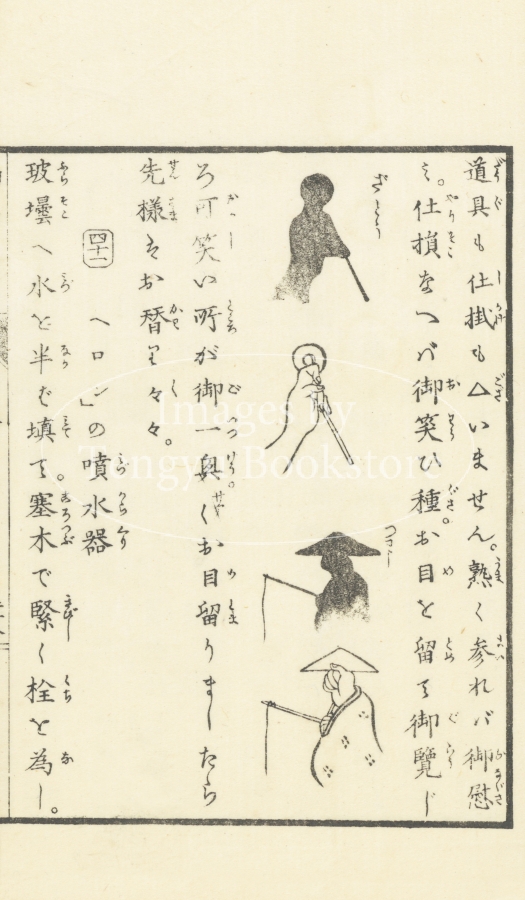 道具も仕掛も△いません。熟く参れバ御慰
ミ。仕損なへバ御笑ひ種。お目を留て御覽じ
ざとう
つりし
ろ可笑い所が御一興くお目留りましたら
先様ハお替り々々。
四十一
ヘロン」の噴水器
玻壜へ水を半バ填て。塞木で緊く栓を為し。
Images by
Tengyu Bookstore